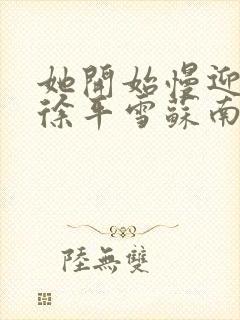 她開始慢迎
徐平雪蘇南
陸無雙